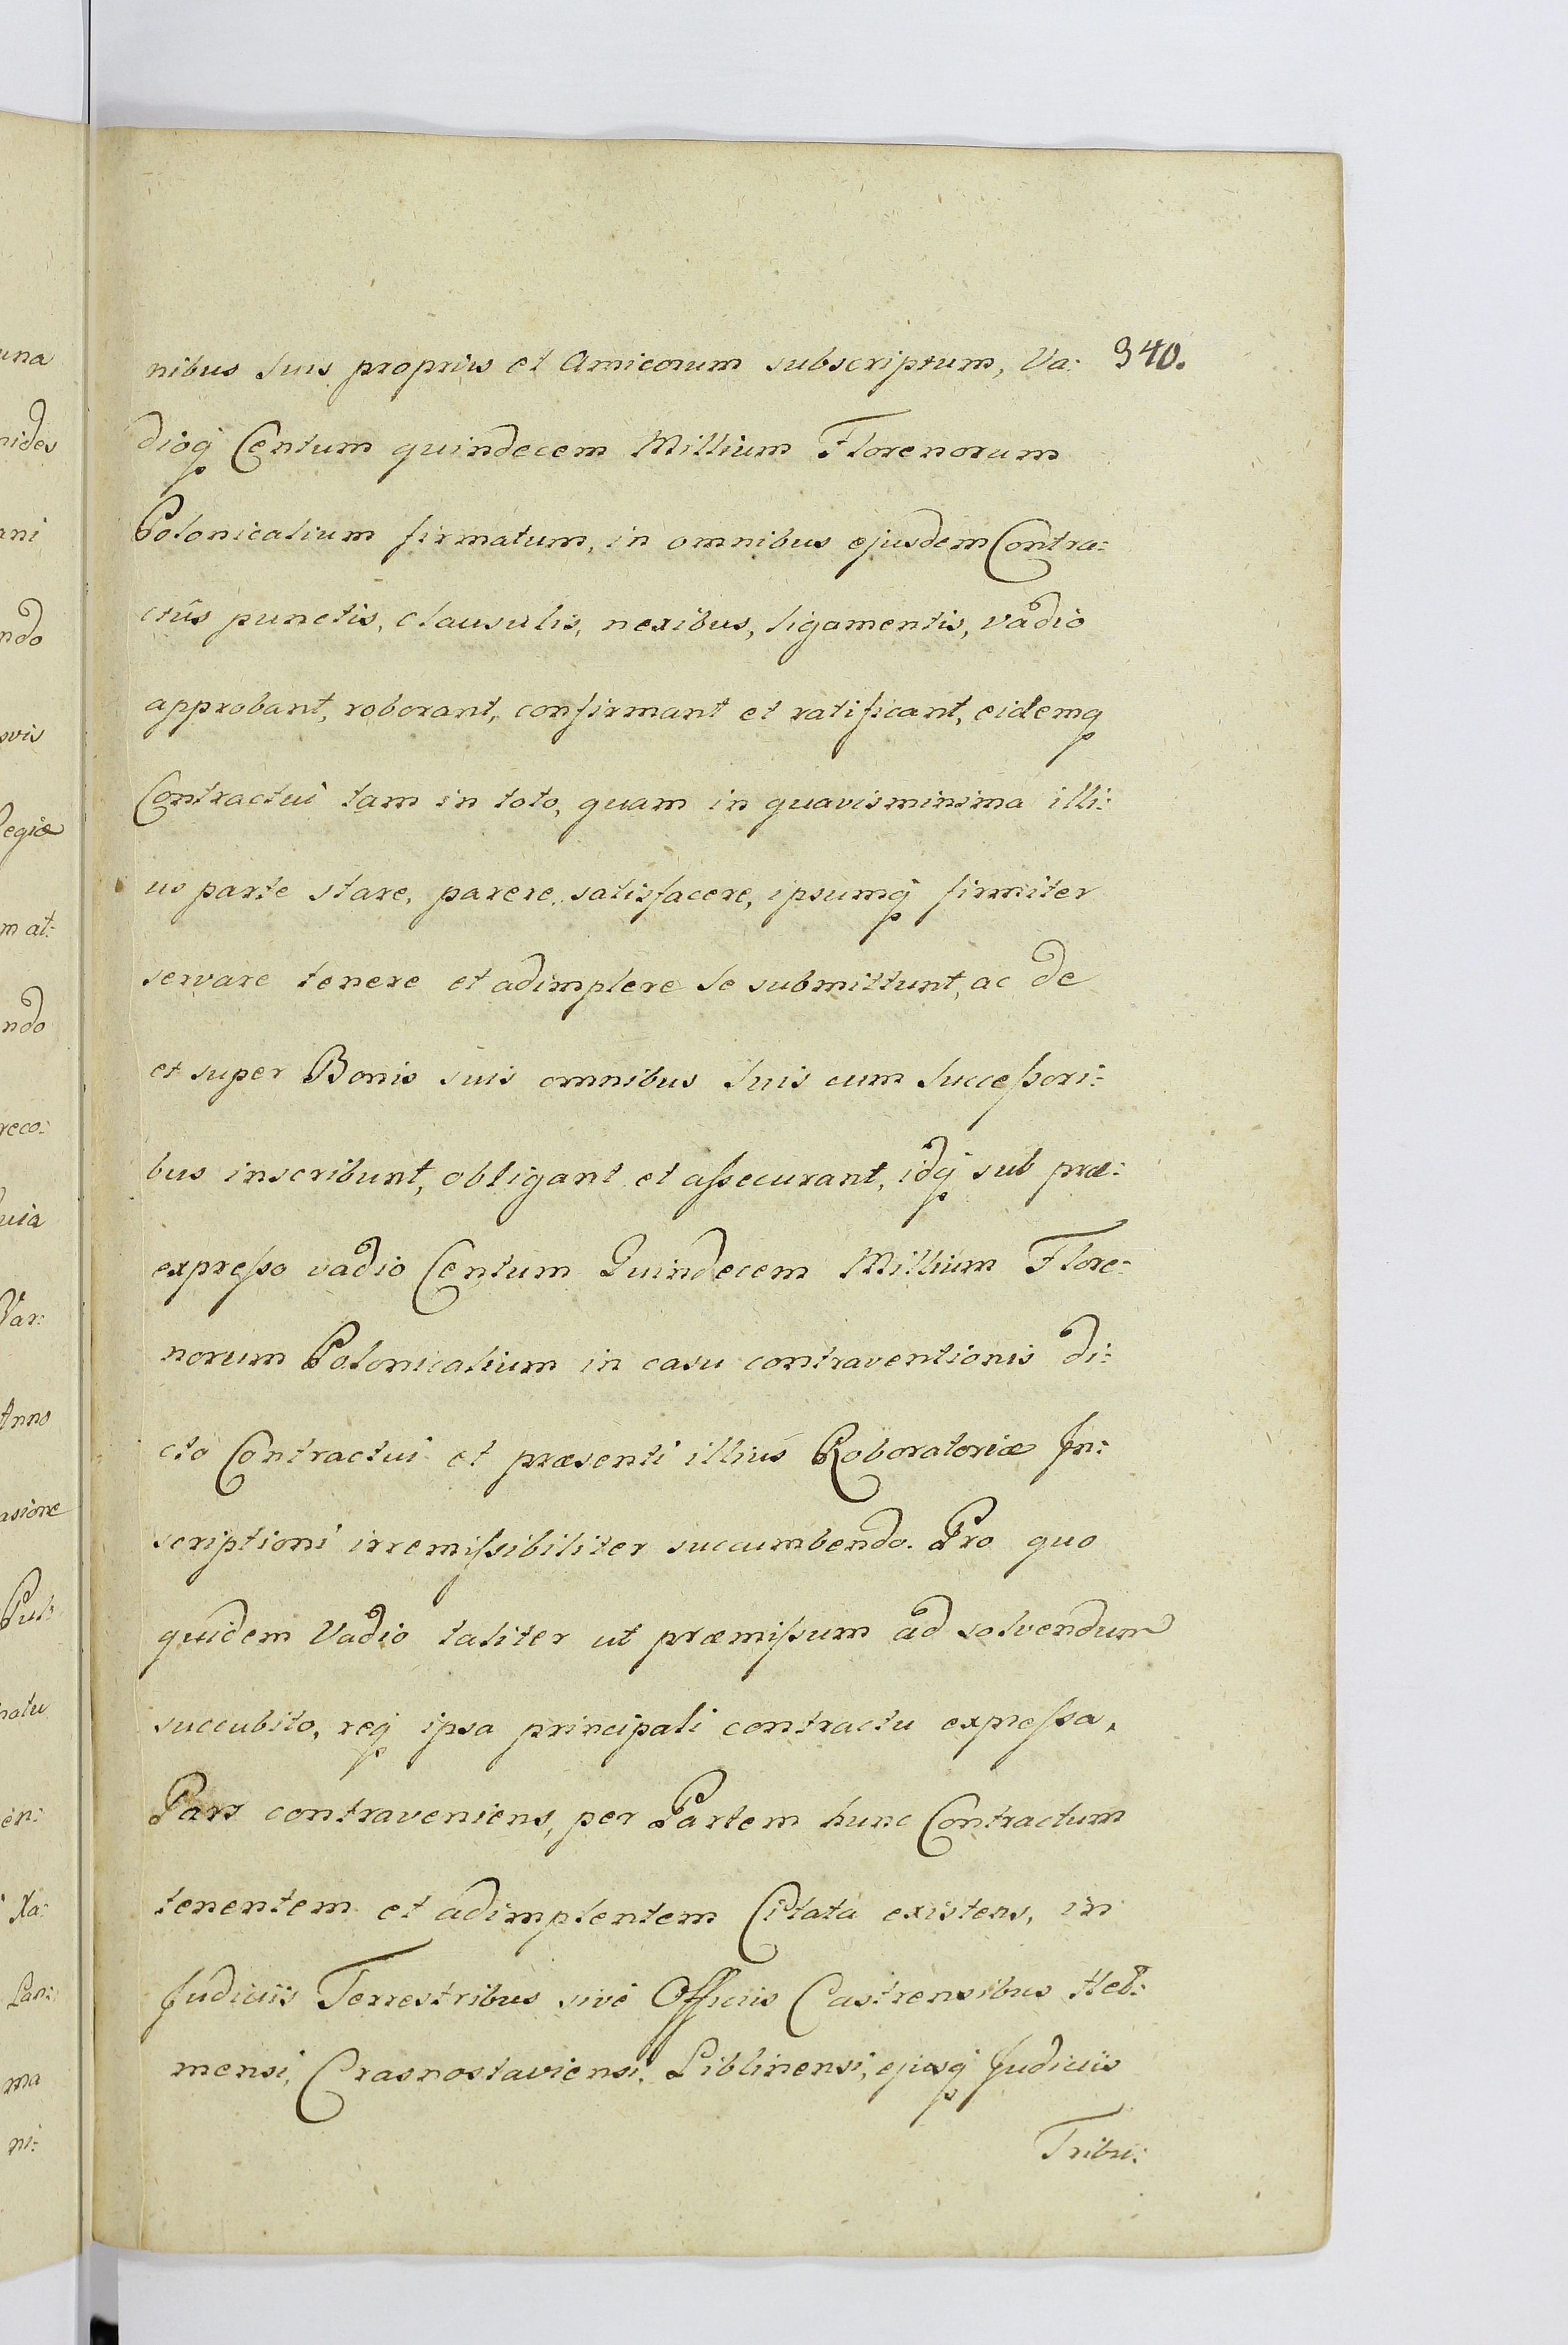 nibus suis propriis et Amicorum subscriptum, Va: 340.
dioq Centum quindecem Millium Florenorum
Polonicalium firmatum, in omnibus ejusdem Contra:
ctûs punctis, clausulis, nexibus, ligamentis, vadio
approbant, roborant, confirmant et ratificant, eidemq
Contractui tam in toto, quam in quavis minima illi:
us parte stare, parere, satisfacere, ipsumq firmiter
servare tenere et adimplere se submittunt, ac de
et super Bonis suis omnibus suis cum Successori:
bus inscribunt, obligant et assecurant, idq sub præ:
expresso vadio Centum Quindecem Millium Flore:
norum Polonicalium in casu contraventionis di:
cto Contractui et præsenti illius Roboratoriæ In:
scriptioni irremissibiliter succumbendo. Pro quo
quidem Vadio taliter ut præmissum ad solvendum
succubito, req ipsa principali contractu expressa,
Pars contraveniens, per Partem hunc Contractum
tenentem et adimplentem Citata existens, in
Judiciis Terrestribus sive Officiis Castrensibus Hel:
mensi, Crasnostaviensi, Liblinensi, ejusq Judiciis
Tribu:
una
nides
ani
ndo
ovis
Regiæ
m at:
ndo
reco:
Var:
Anno
asione
Pub
natu
en:
Xa:
Lan:
ma
ni: